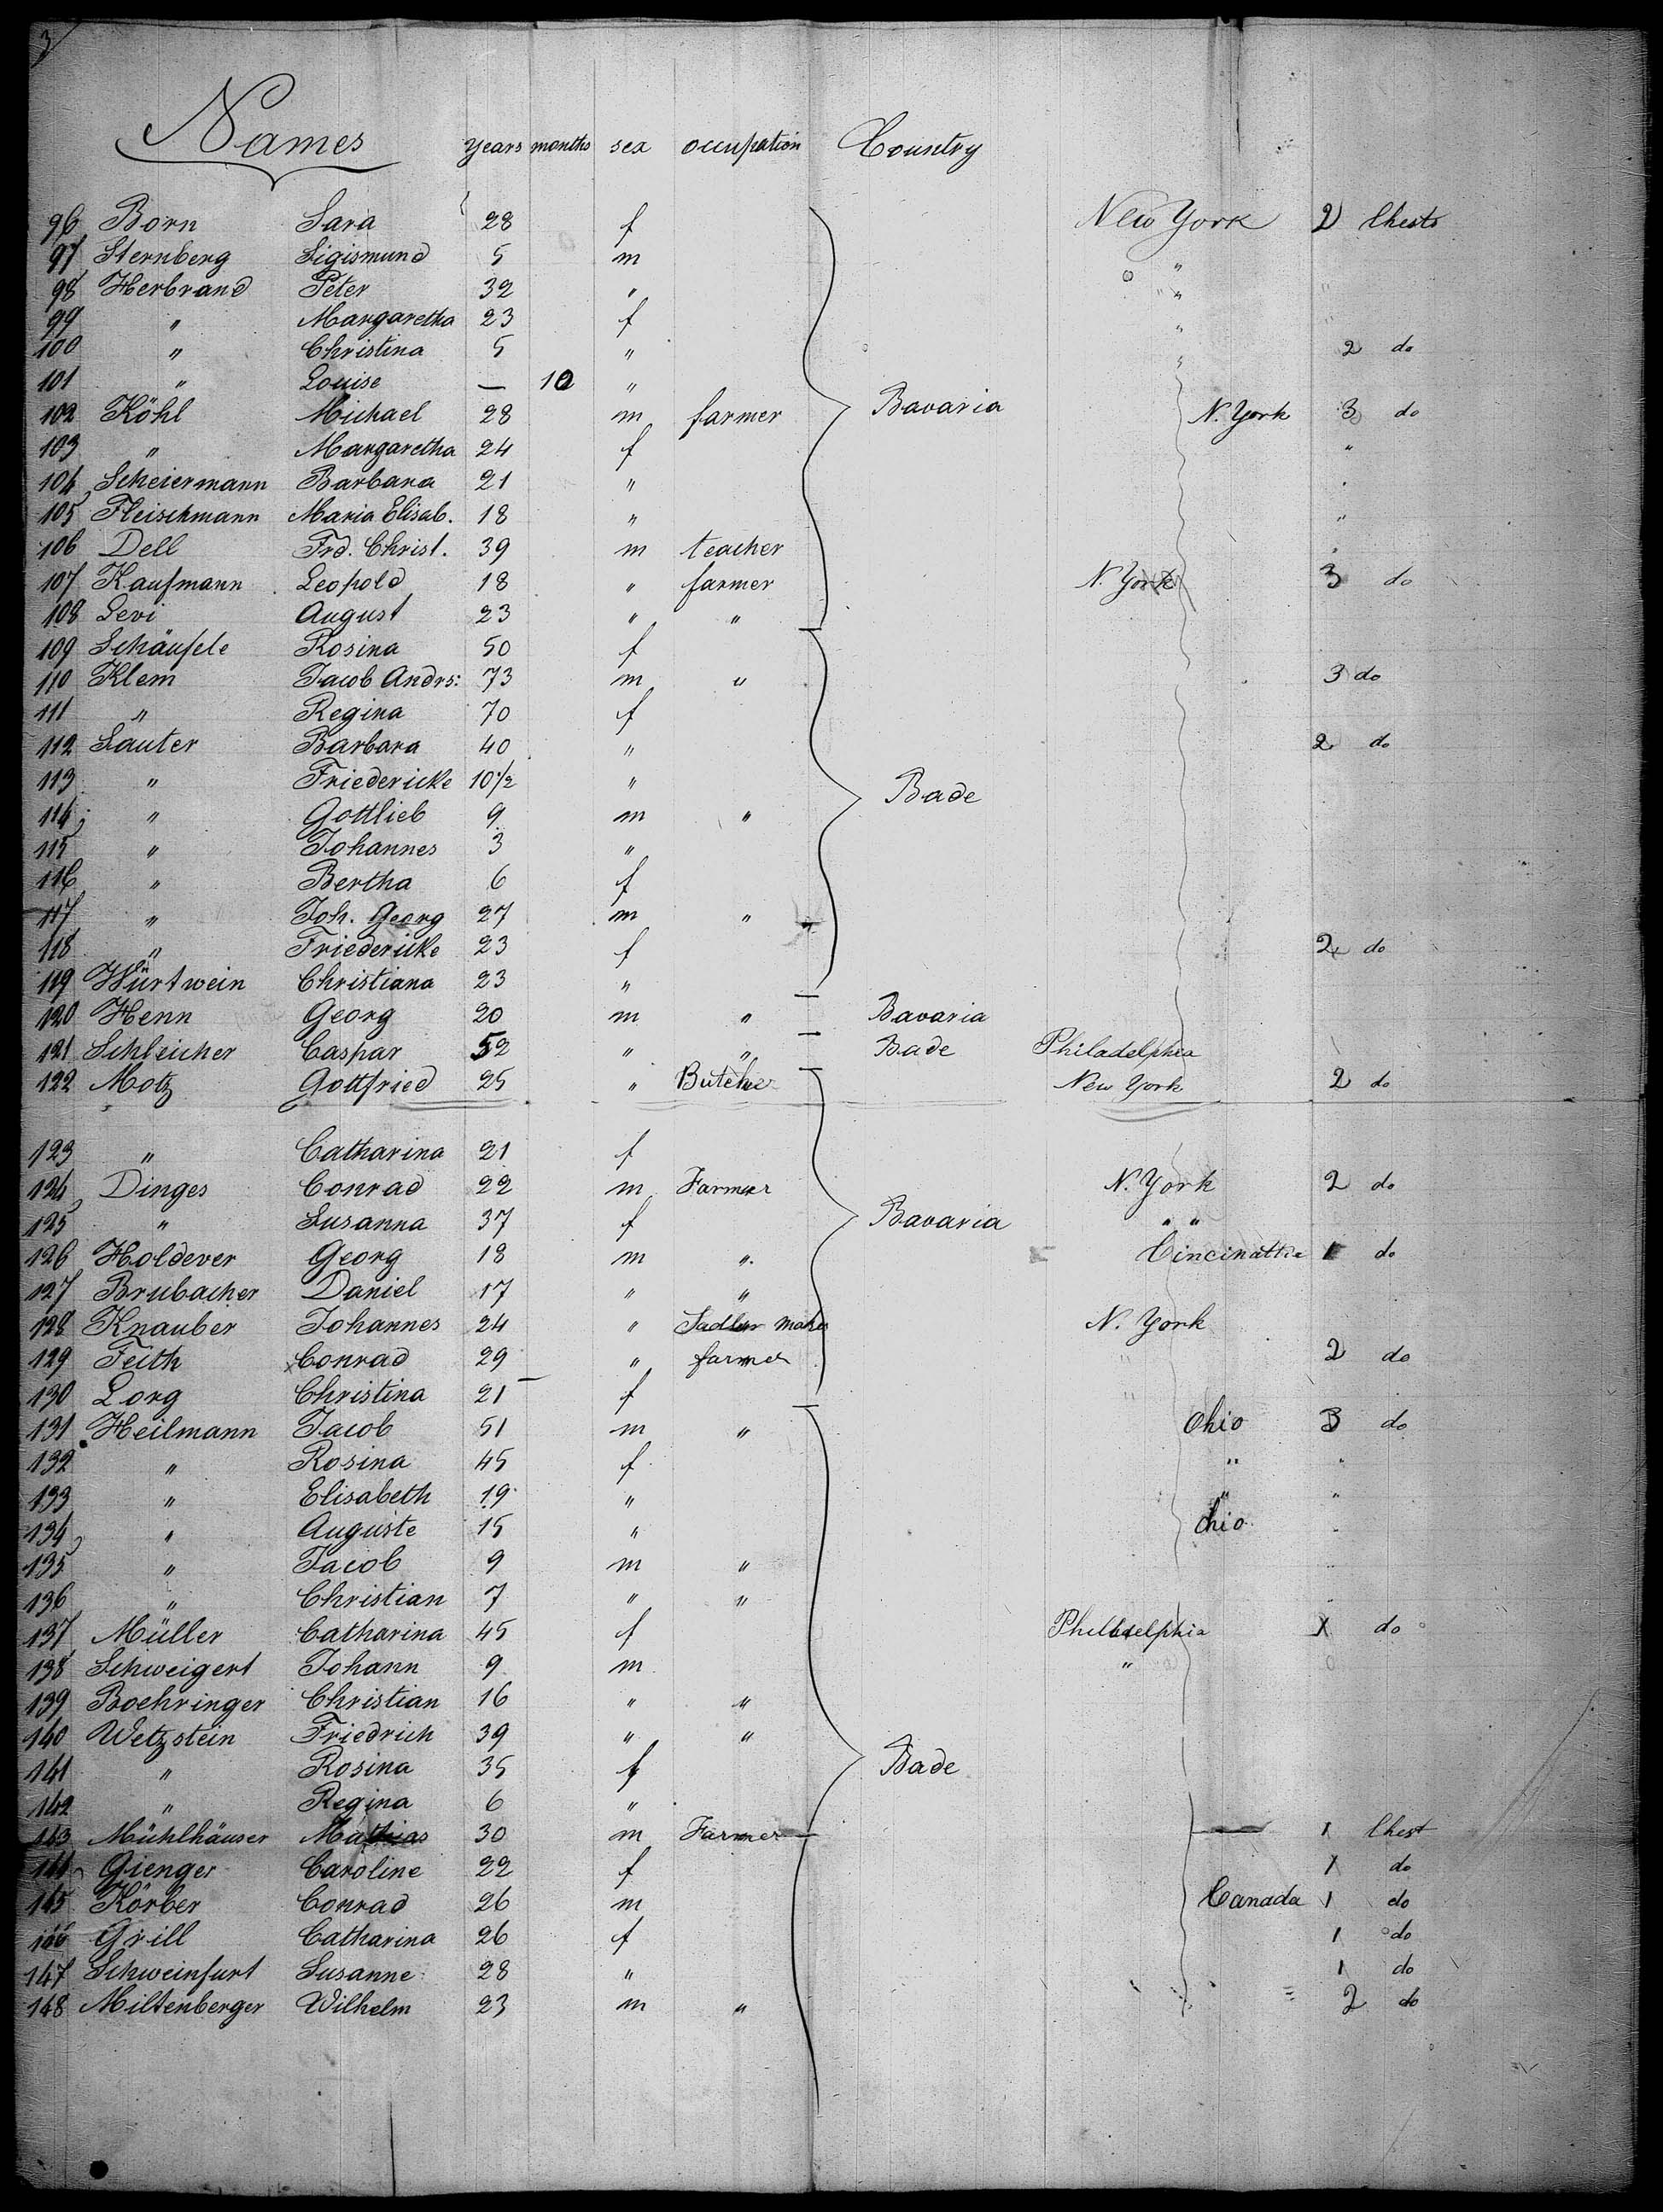 3
Names years months sex occupation Country
96 Born Sara 28 f New York 2 Chests
97 Sternberg Sigismund 5 m "
98 Herbrand Peter 32 " "
99 " Margaretha 23 f "
100 " Christina 5 " " 2 do
101 " Louise — 10 "
102 Köhl Michael 28 m farmer Bavaria N. York 3 do
103 " Margaretha 24 f "
104 Scheiermann Barbara 21 " "
105 Fleischmann Maria Elisab. 18 " "
106 Dell Frd. Christ. 39 m teacher "
107 Kaufmann Leopold 18 " farmer N. York 3 do
108 Levi August 23 " "
109 Schäufele Rosina 50 f
110 Klem Jacob Andrs: 73 m " 3 do
111 " Regina 70 f
112 Lauter Barbara 40 " 2 do
113 " Friedericke 10 1/2 "
114 " Gottlieb 9 m " Bade
115 " Johannes 3 "
116 " Bertha 6 f
117 " Joh. Georg 27 m "
118 " Friedericke 23 f 2 do
119 Würtwein Christiana 23 "
120 Henn Georg 20 m " Bavaria
121 Schleicher Caspar 52 " " Bade Philadelphia
122 Motz Gottfried 25 " Butcher New York 2 do
123 " Catharina 21 f
124 Dinges Conrad 22 m Farmer N. York 2 do
125 " Susanna 37 f Bavaria " "
126 Holdever Georg 18 m " Cincinattie 1 do
127 Brubacher Daniel 17 " "
128 Knauber Johannes 24 " Sadler maker N. York
129 Feith Conrad 29 " farmer " 2 do
130 Lorg Christina 21 f "
131 Heilmann Jacob 51 m " Ohio 3 do
132 " Rosina 45 f " "
133 " Elisabeth 19 " " "
134 " Auguste 15 " Ohio "
135 " Jacob 9 m "
136 " Christian 7 " "
137 Müller Catharina 45 f Philadelphia 1 do
138 Schweigert Johann 9 m "
139 Boehringer Christian 16 " "
140 Wetzstein Friedrich 39 " "
141 " Rosina 35 f Bade
142 " Regina 6 "
143 Mühlhäuser Mathias 30 m Farmer — 1 Chest
144 Gienger Caroline 22 f 1 do
145 Körber Conrad 26 m Canada 1 do
146 Grill Catharina 26 f 1 do
147 Schweinfurt Susanne 28 " 1 do
148 Miltenberger Wilhelm 23 m " 2 do